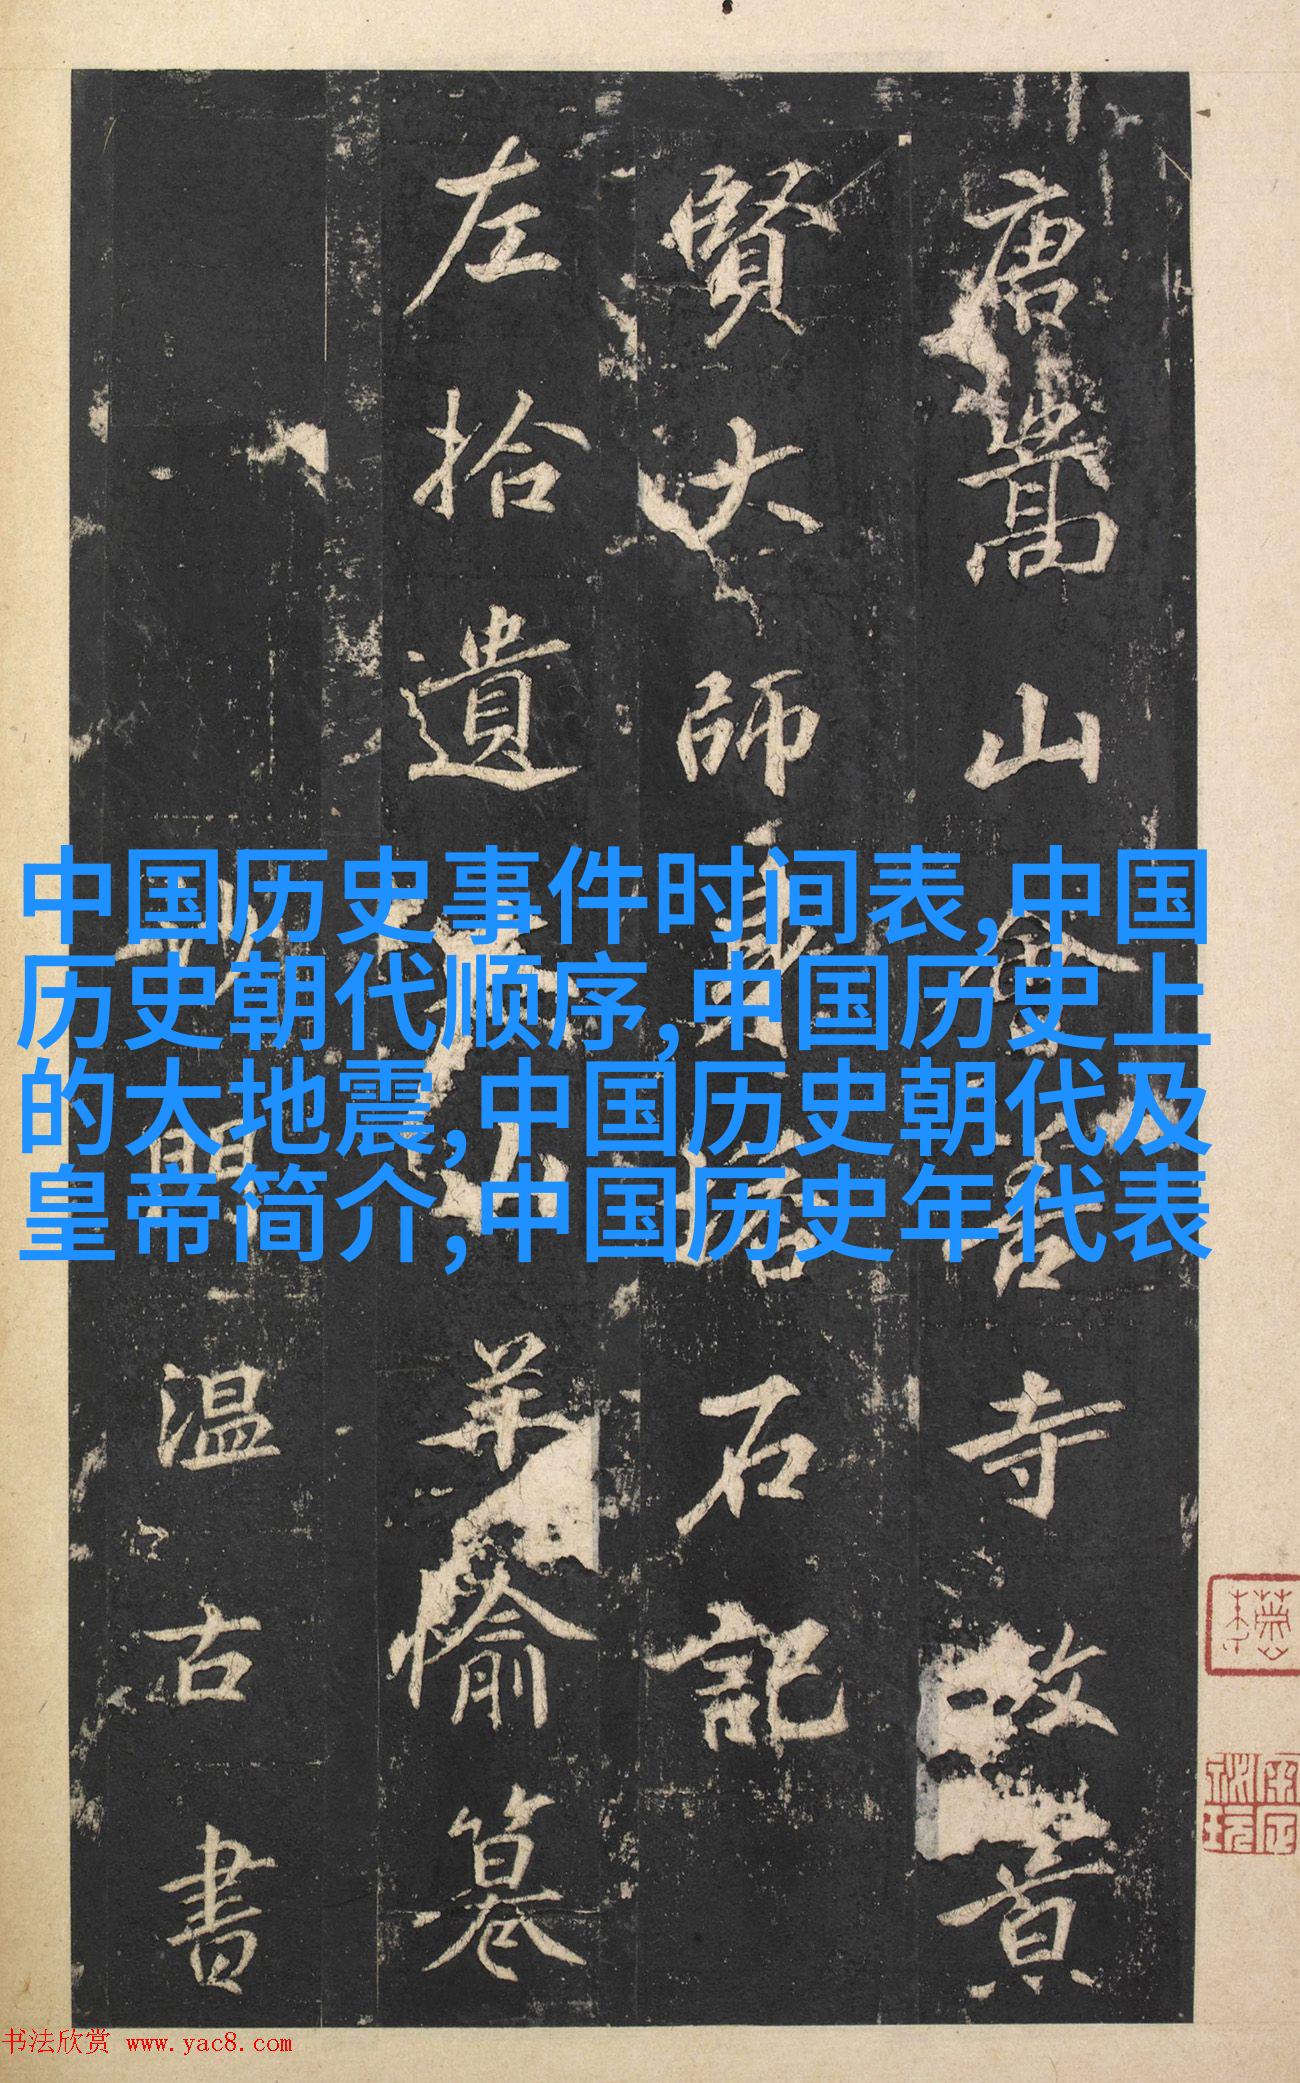 唐嵩山會善寺故景
賢大師身塔石記
左拾遺山羊愉篹
沙門温古書
中国历史事件时间表,中国
历史朝代顺序,中国历史上
的大地震,中国历史朝代及
皇帝简介,中国历史年代表
书法欣赏 www.yac8.com